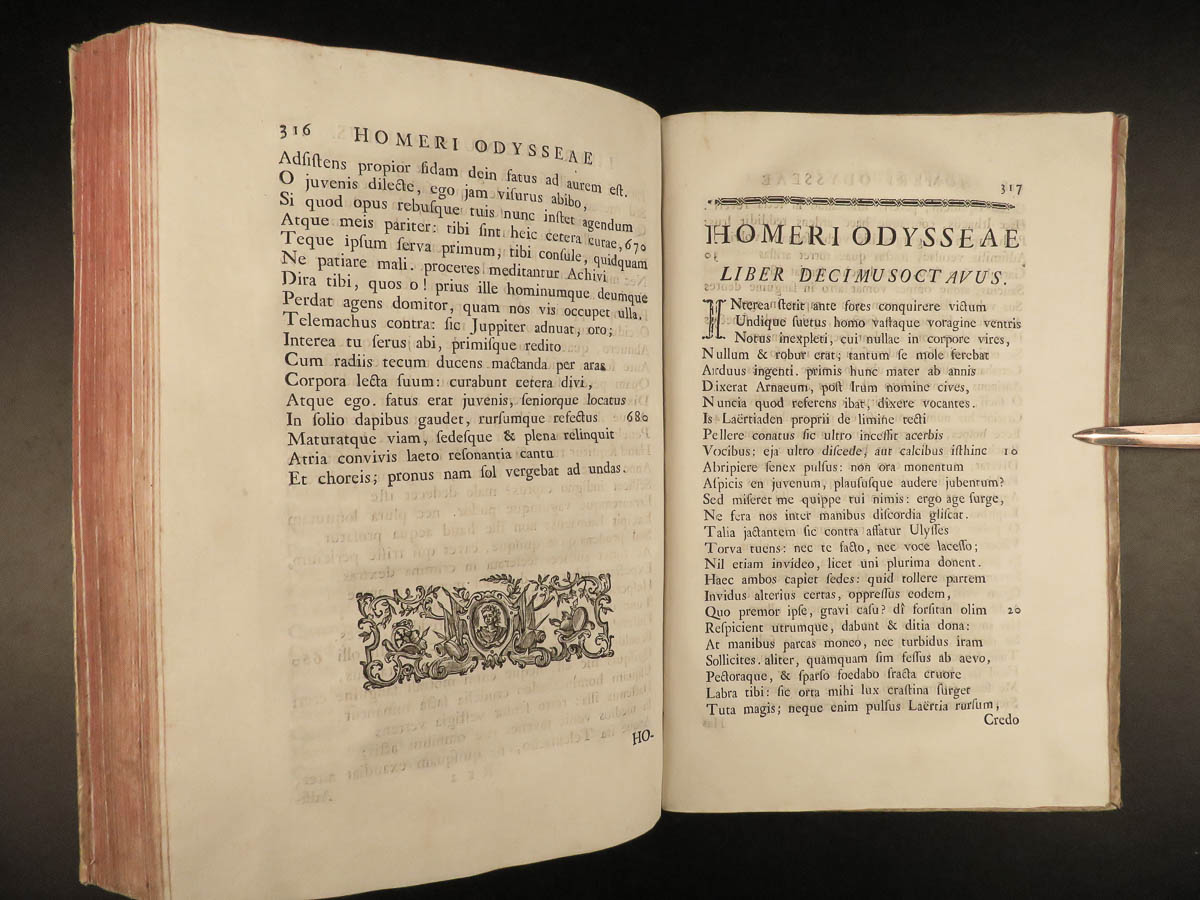 316 HOMERI ODYSSEAE
Adſiſtens propior ſidam dein fatus ad aurem eſt.
O juvenis dilecte, ego jam viſurus abibo,
Si quod opus rebuſque tuis nunc inſtet agendum
Atque meis pariter: tibi ſint heic cetera curae, 670
Teque ipſum ſerva primum, tibi conſule, quidquam
Ne patiare mali. proceres meditantur Achivi
Dira tibi, quos o! prius ille hominumque deumque
Perdat agens domitor, quam nos vis occupet ulla.
Telemachus contra: ſic Juppiter adnuat, oro;
Interea tu ſerus abi, primiſque redito
Cum radiis tecum ducens mactanda per aras
Corpora lecta ſuum: curabunt cetera divi,
Atque ego. fatus erat juvenis, ſeniorque locatus
In ſolio dapibus gaudet, rurſumque refectus 680
Maturatque viam, ſedeſque & plena relinquit
Atria convivis laeto reſonantia cantu
Et choreis; pronus nam ſol vergebat ad undas.
HO-
317
HOMERI ODYSSEAE
LIBER DECIMUSOCTAVUS.
INterea ſterit ante fores conquirere victum
Undique ſuetus homo vaſtaque voragine ventris
Notus inexpleti, cui nullae in corpore vires,
Nullum & robur erat; tantum ſe mole ferebat
Arduus ingenti. primis hunc mater ab annis
Dixerat Arnaeum, poſt Irum nomine cives,
Nuncia quod referens ibat, dixere vocantes.
Is Laërtiaden proprii de limine tecti
Pellere conatus ſic ultro inceſſit acerbis
Vocibus; eja ultro diſcede, aut calcibus iſthinc 10
Abripiere ſenex pulſus: non ora monentum
Aſpicis en juvenum, plauſuſque audere jubentum?
Sed miſeret me quippe tui nimis: ergo age ſurge,
Ne fera nos inter manibus diſcordia gliſcat.
Talia jactantem ſic contra affatur Ulyſſes
Torva tuens: nec te facto, nec voce laceſſo;
Nil etiam invideo, licet uni plurima donent.
Haec ambos capiet ſedes: quid tollere partem
Invidus alterius certas, oppreſſus eodem,
Quo premor ipſe, gravi caſu? dî forſitan olim 20
Reſpicient utrumque, dabunt & ditia dona:
At manibus parcas moneo, nec turbidus iram
Sollicites. aliter, quamquam ſim feſſus ab aevo,
Pectoraque, & ſparſo foedabo fracta cruore
Labra tibi: ſic orta mihi lux craſtina ſurget
Tuta magis; neque enim pulſus Laërtia rurſum,
Credo